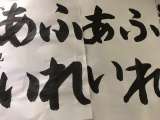 ふれ
あい
ふれ
あい